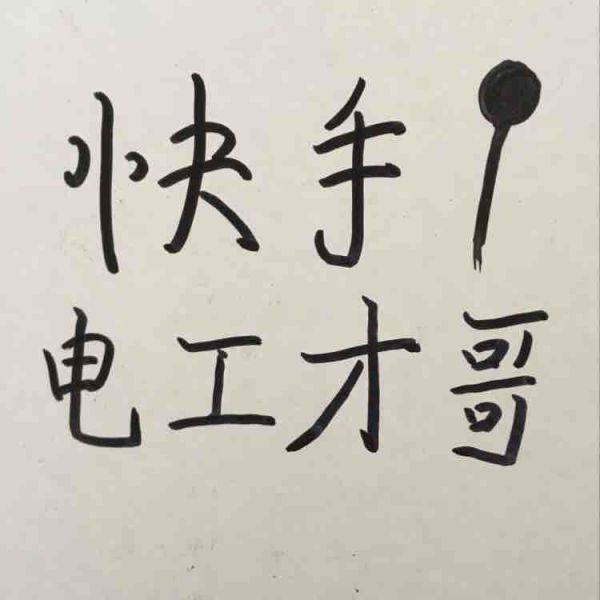 快手
电工才哥